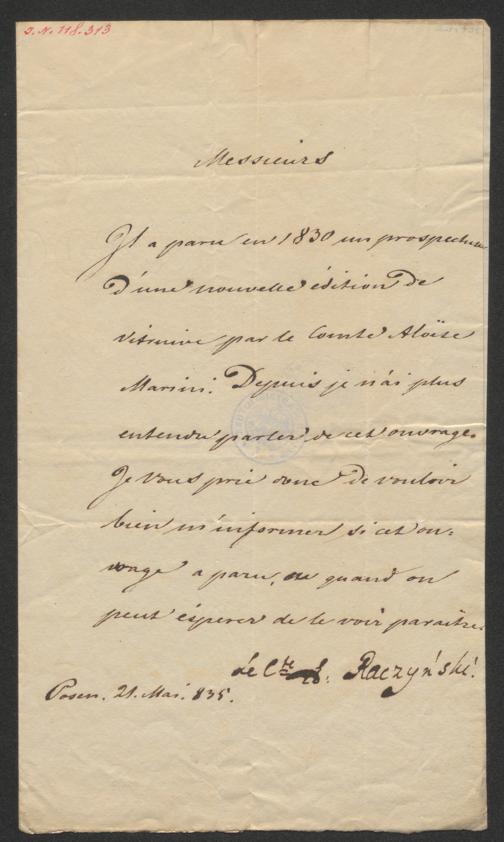 J.N. 118.313
Messieurs
Il a paru en 1830 un prospectus
d'une nouvelle édition de
vitruive par le Comte Aloïse
Marini. Depuis je n'ai plus
entendu parler de cet ouvrage.
Je vous prie donc de vouloir
bien m'informer si cet ou=
vrage a paru, ou quand on
peut éspérer de le voir paraître.
le Cte Raczyński.
Posen. 21. Mai. 835.